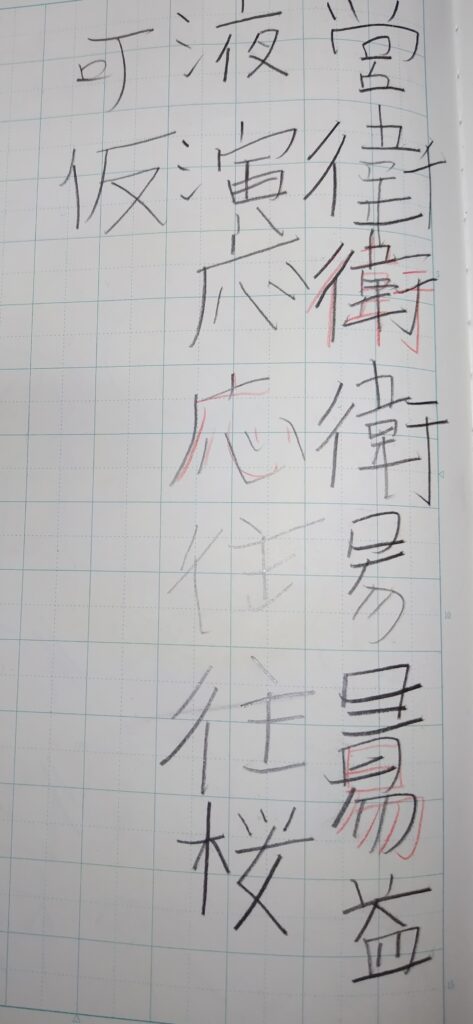 営衛衛衛易易益
液演応応往往桜
可仮